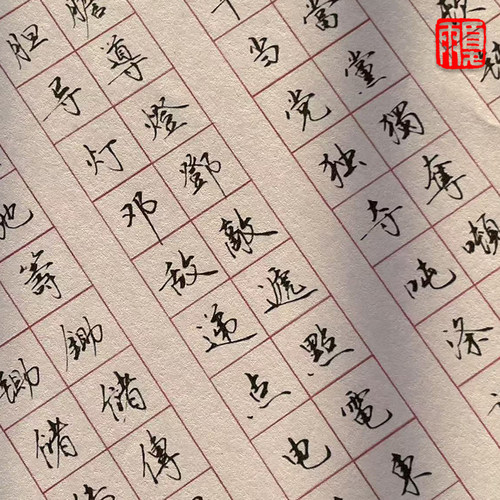 當黨獨奪噸
当党独夺吨涤
膽導燈鄧敵遞點電東
胆导灯邓敌递点电
籌鋤儲傳
锄储